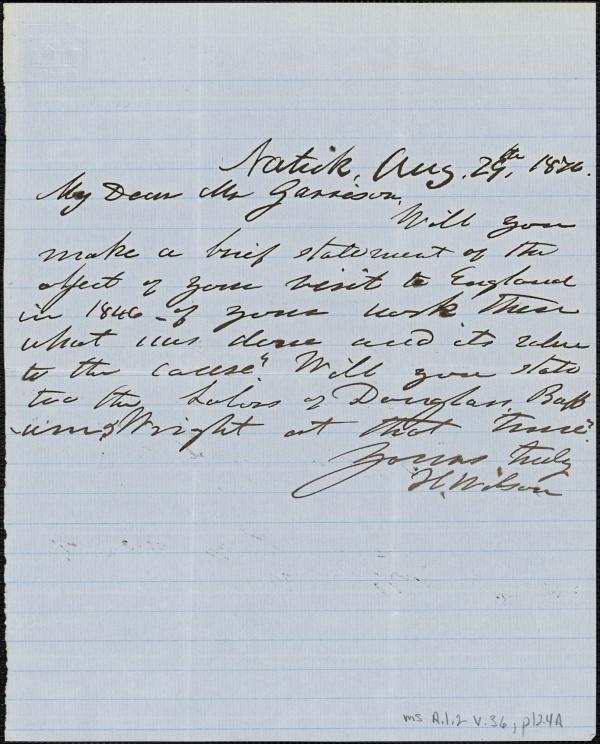 Natick, Aug. 29th, 1870.
My Dear Mr Garrison,
Will you
make a brief statement of the
object of your visit to England
in 1846 - of your work there
what was done and its value
to the cause" Will you state
too the Labors of Douglass, Buff
-um & Wright at that time"
Yours truly
H. Wilson
ms A.1.2 v.36, p124A